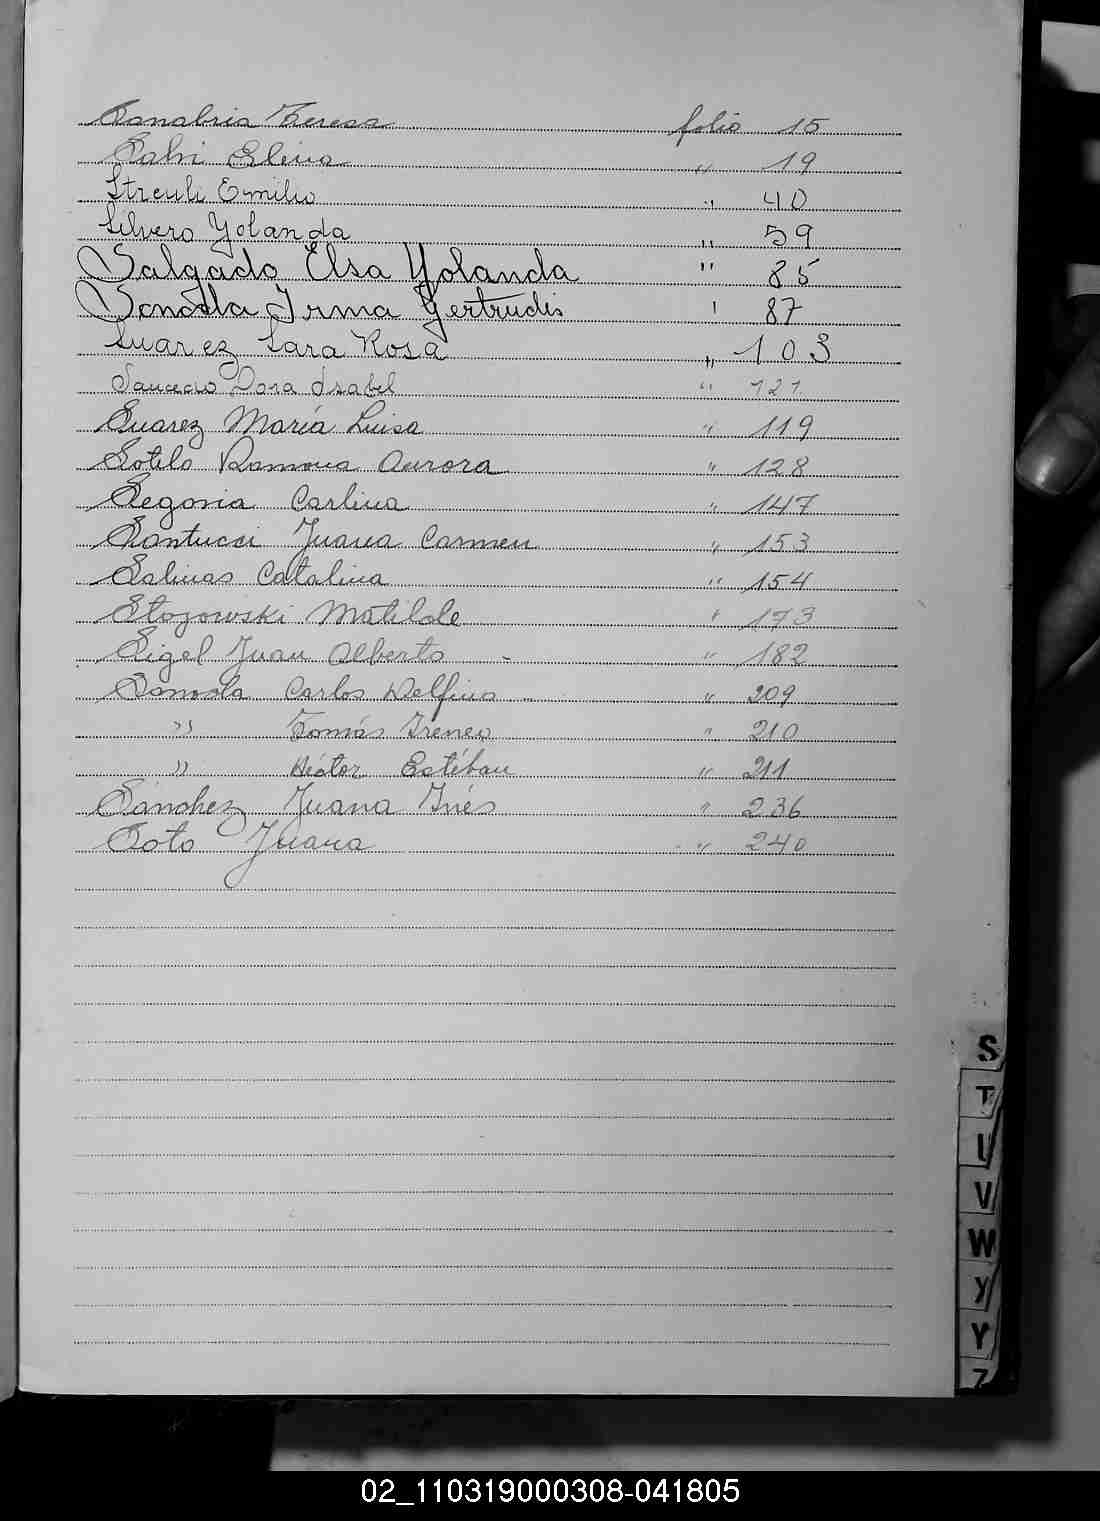 Sanabria Teresa folio 15
Elena " 19
Streuli Emilio " 40
Silvero Yolanda " 59
Salgado Elsa Yolanda " 85
Irma Gertrudis " 87
Suarez Sara Rosa " 103
Saucedo Dora Isabel " 121
Suarez María Luisa " 119
Sotelo Ramona Aurora " 128
Segovia Carlina " 147
Santucci Juana Carmen " 153
Salinas Catalina " 154
Stozowski Matilde " 173
Sigel Juan Alberto - " 182
Carlos Delfino " 209
" Tomás Ireneo " 210
" Héctor Estéban " 211
Sánchez Juana Inés " 236
Soto Juana " 240
S
T
V
W
Y
Z
02_110319000308-041805